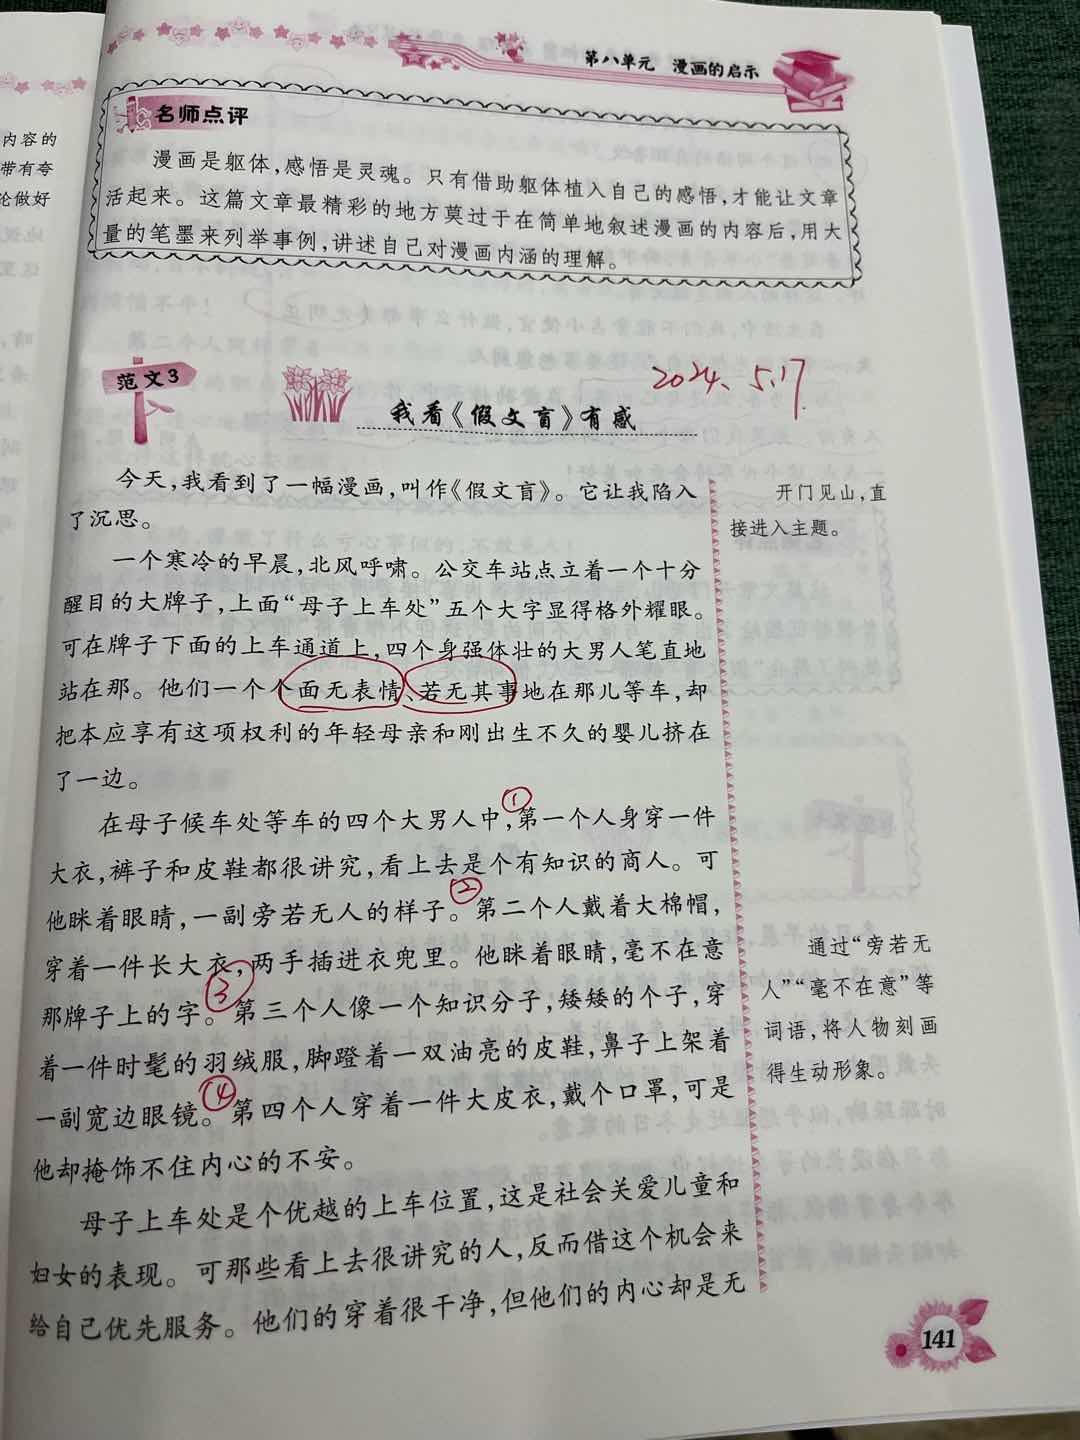 第八单元 漫画的启示
内容的
带有夸
论做好
名师点评
漫画是躯体,感悟是灵魂。只有借助躯体植入自己的感悟,才能让文章
活起来。这篇文章最精彩的地方莫过于在简单地叙述漫画的内容后,用大
量的笔墨来列举事例,讲述自己对漫画内涵的理解。
范文3
2024、5.17
我看《假文盲》有感
今天,我看到了一幅漫画,叫作《假文盲》。它让我陷入
了沉思。
开门见山,直
接进入主题。
一个寒冷的早晨,北风呼啸。公交车站点立着一个十分
醒目的大牌子,上面“母子上车处”五个大字显得格外耀眼。
可在牌子下面的上车通道上,四个身强体壮的大男人笔直地
站在那。他们一个个面无表情、若无其事地在那儿等车,却
把本应享有这项权利的年轻母亲和刚出生不久的婴儿挤在
了一边。
①
在母子候车处等车的四个大男人中,第一个人身穿一件
大衣,裤子和皮鞋都很讲究,看上去是个有知识的商人。可
②
他眯着眼睛,一副旁若无人的样子。第二个人戴着大棉帽,
穿着一件长大衣,两手插进衣兜里。他眯着眼睛,毫不在意
③
那牌子上的字。第三个人像一个知识分子,矮矮的个子,穿
着一件时髦的羽绒服,脚蹬着一双油亮的皮鞋,鼻子上架着
④
一副宽边眼镜。第四个人穿着一件大皮衣,戴个口罩,可是
他却掩饰不住内心的不安。
通过“旁若无
人”“毫不在意”等
词语,将人物刻画
得生动形象。
母子上车处是个优越的上车位置,这是社会关爱儿童和
妇女的表现。可那些看上去很讲究的人,反而借这个机会来
给自己优先服务。他们的穿着很干净,但他们的内心却是无
141